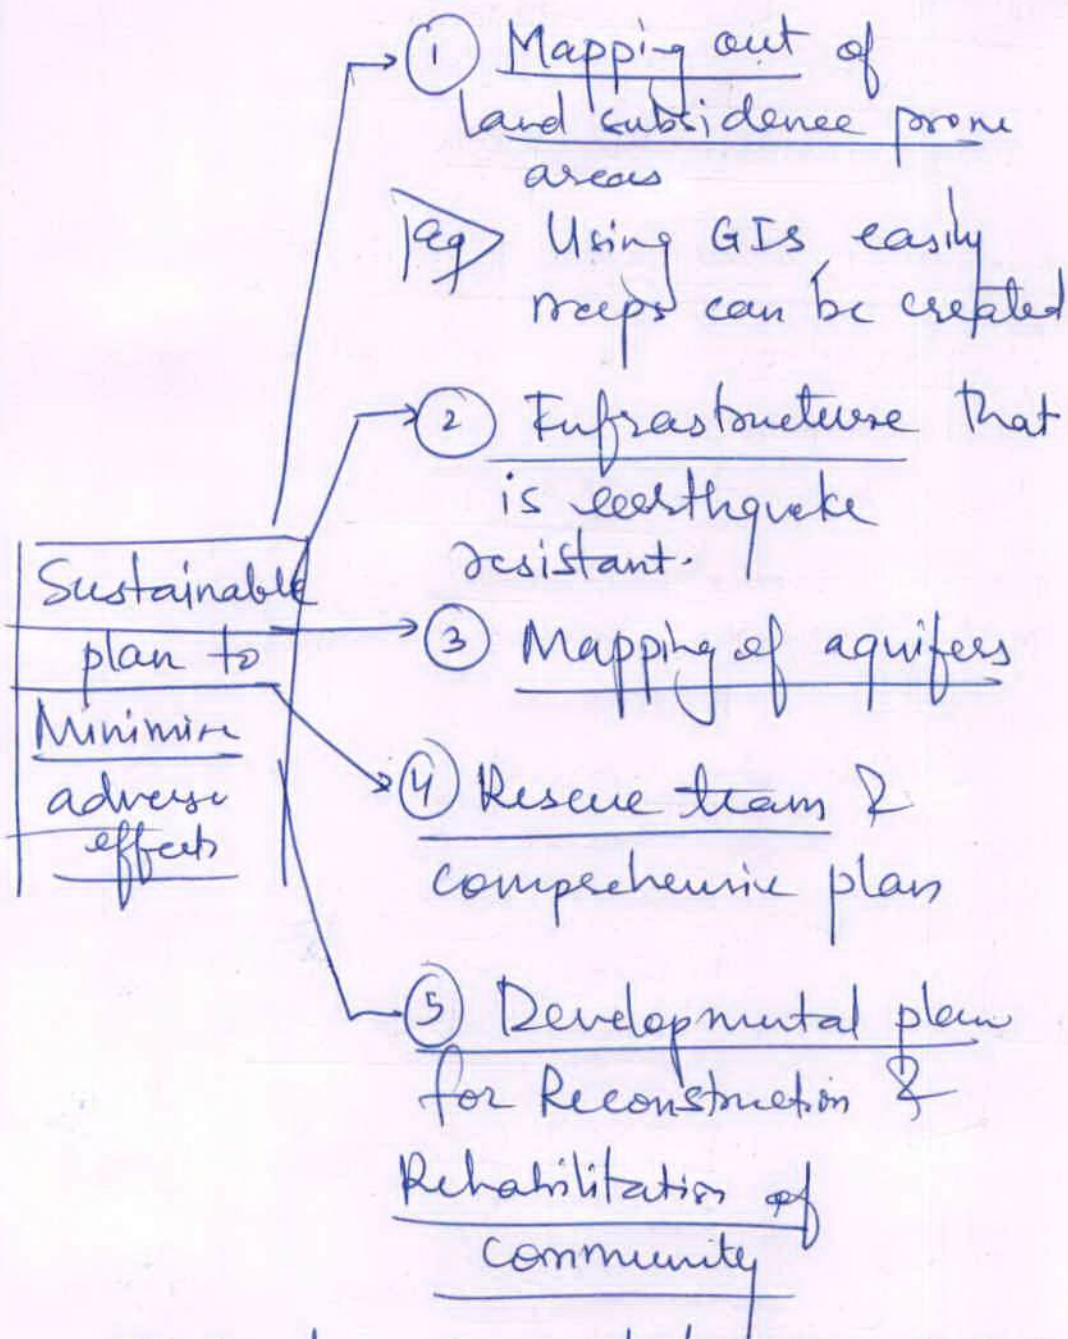 Sustainable
plan to
Minimise
adverse
effects
① Mapping out of
land subsidence prone
areas
eg Using GIS, easily
maps can be created
② Infrastructure that
is earthquake
resistant.
③ Mapping of aquifers
④ Rescue team &
comprehensive plan
⑤ Developmental plan
for Reconstruction &
Rehabilitation of
community